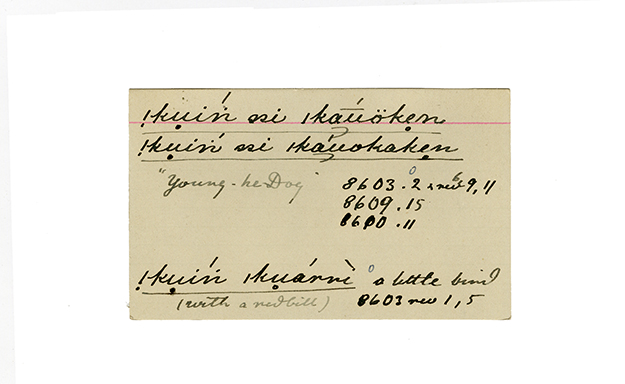 ǀkụiń ssi ǀkā́úökẹn
ǃkụiń ssi ǀkáuokakẹn
"Young-he Dog" 8603.2 & rev 9, 11
8609.15
8610.11
ǃkụiń ǀkụárrì a little bird
(with a red bill) 8603 rev 1, 5